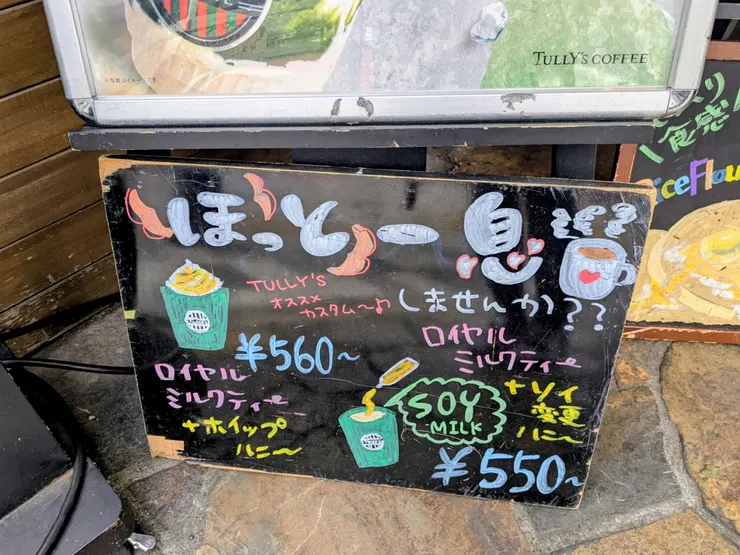 ※写真はイメージです。
TULLY'S COFFEE
ほっと一息
しませんか??
TULLY'S
オススメ
カスタム〜♪
¥560〜
ロイヤル
ミルクティー
+ホイップ
ハニー
ロイヤル
ミルクティー
+ソイ
変更
ハニー
SOY
MILK
¥550〜
食感
iceFlou